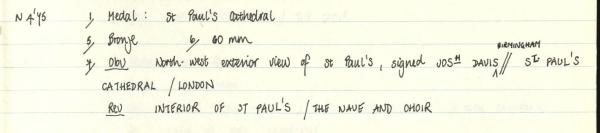 N 4'45 1, Medal: St Paul's Cathedral
5, Bronze 6, 60 mm
7, Obv North-west exterior view of St Paul's, signed JOSH DAVIS BIRMINGHAM // ST. PAUL'S
CATHEDRAL / LONDON
Rev INTERIOR OF ST PAUL'S / THE NAVE AND CHOIR